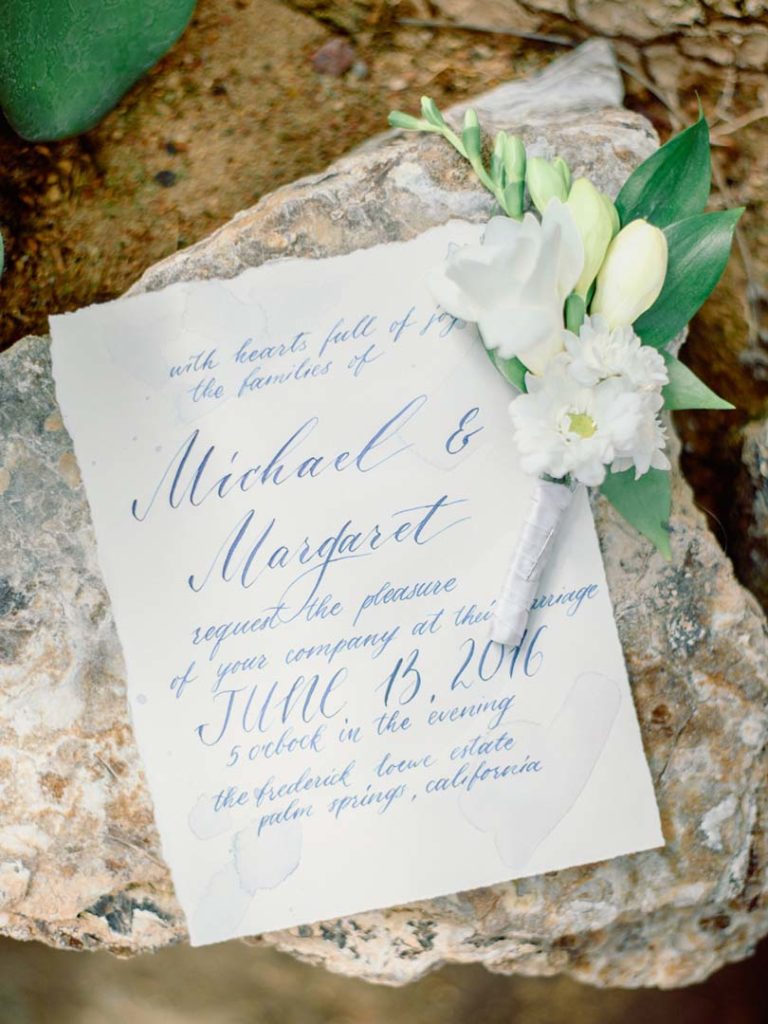 with hearts full of joy
the families of
Michael &
Margaret
request the pleasure
of your company at their marriage
JUNE 13, 2016
5 o'clock in the evening
the frederick loewe estate
palm springs, california